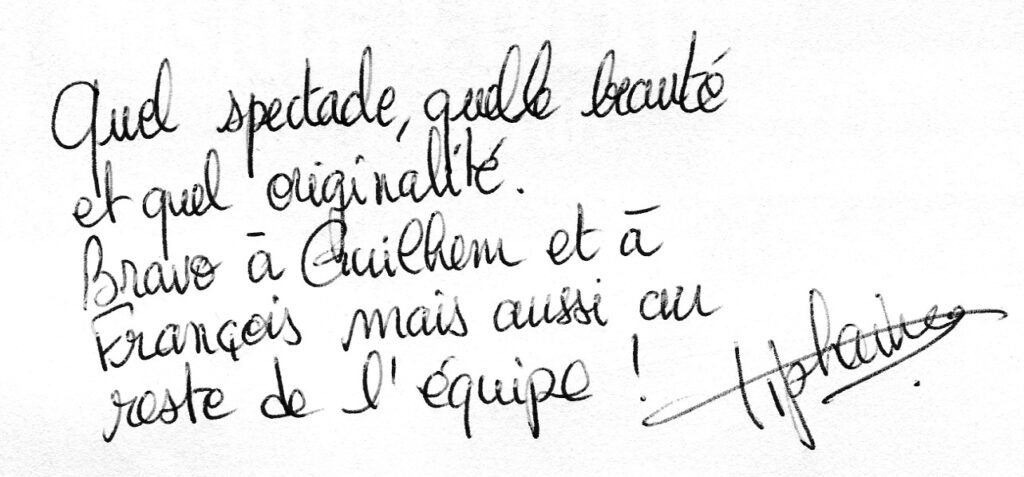 Quel spectacle, quelle beauté
et quel originalité.
Bravo à Guilhem et à
François mais aussi au
reste de l'équipe !
Tiphaine